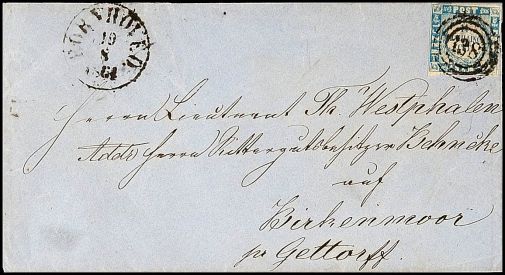 BORNHÖVED.
19
8
1864
POST
138
Herrn Lieutnant Th. Westphalen
Addr Herrn Rittergutsbesitzer Behncke
auf
Birkenmoor
pr Gettorff.